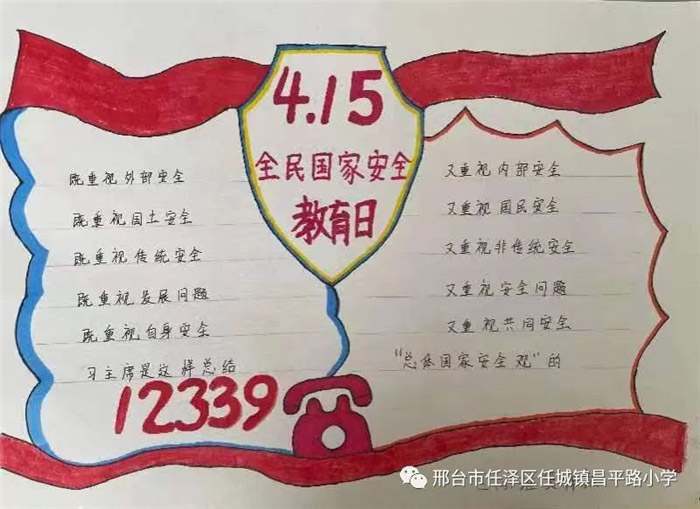 4.15
全民国家安全
教育日
既重视外部安全
既重视国土安全
既重视传统安全
既重视发展问题
既重视自身安全
习主席是这样总结
又重视内部安全
又重视国民安全
又重视非传统安全
又重视安全问题
又重视共同安全
“总体国家安全观”的
12339
邢台市任泽区任城镇昌平路小学